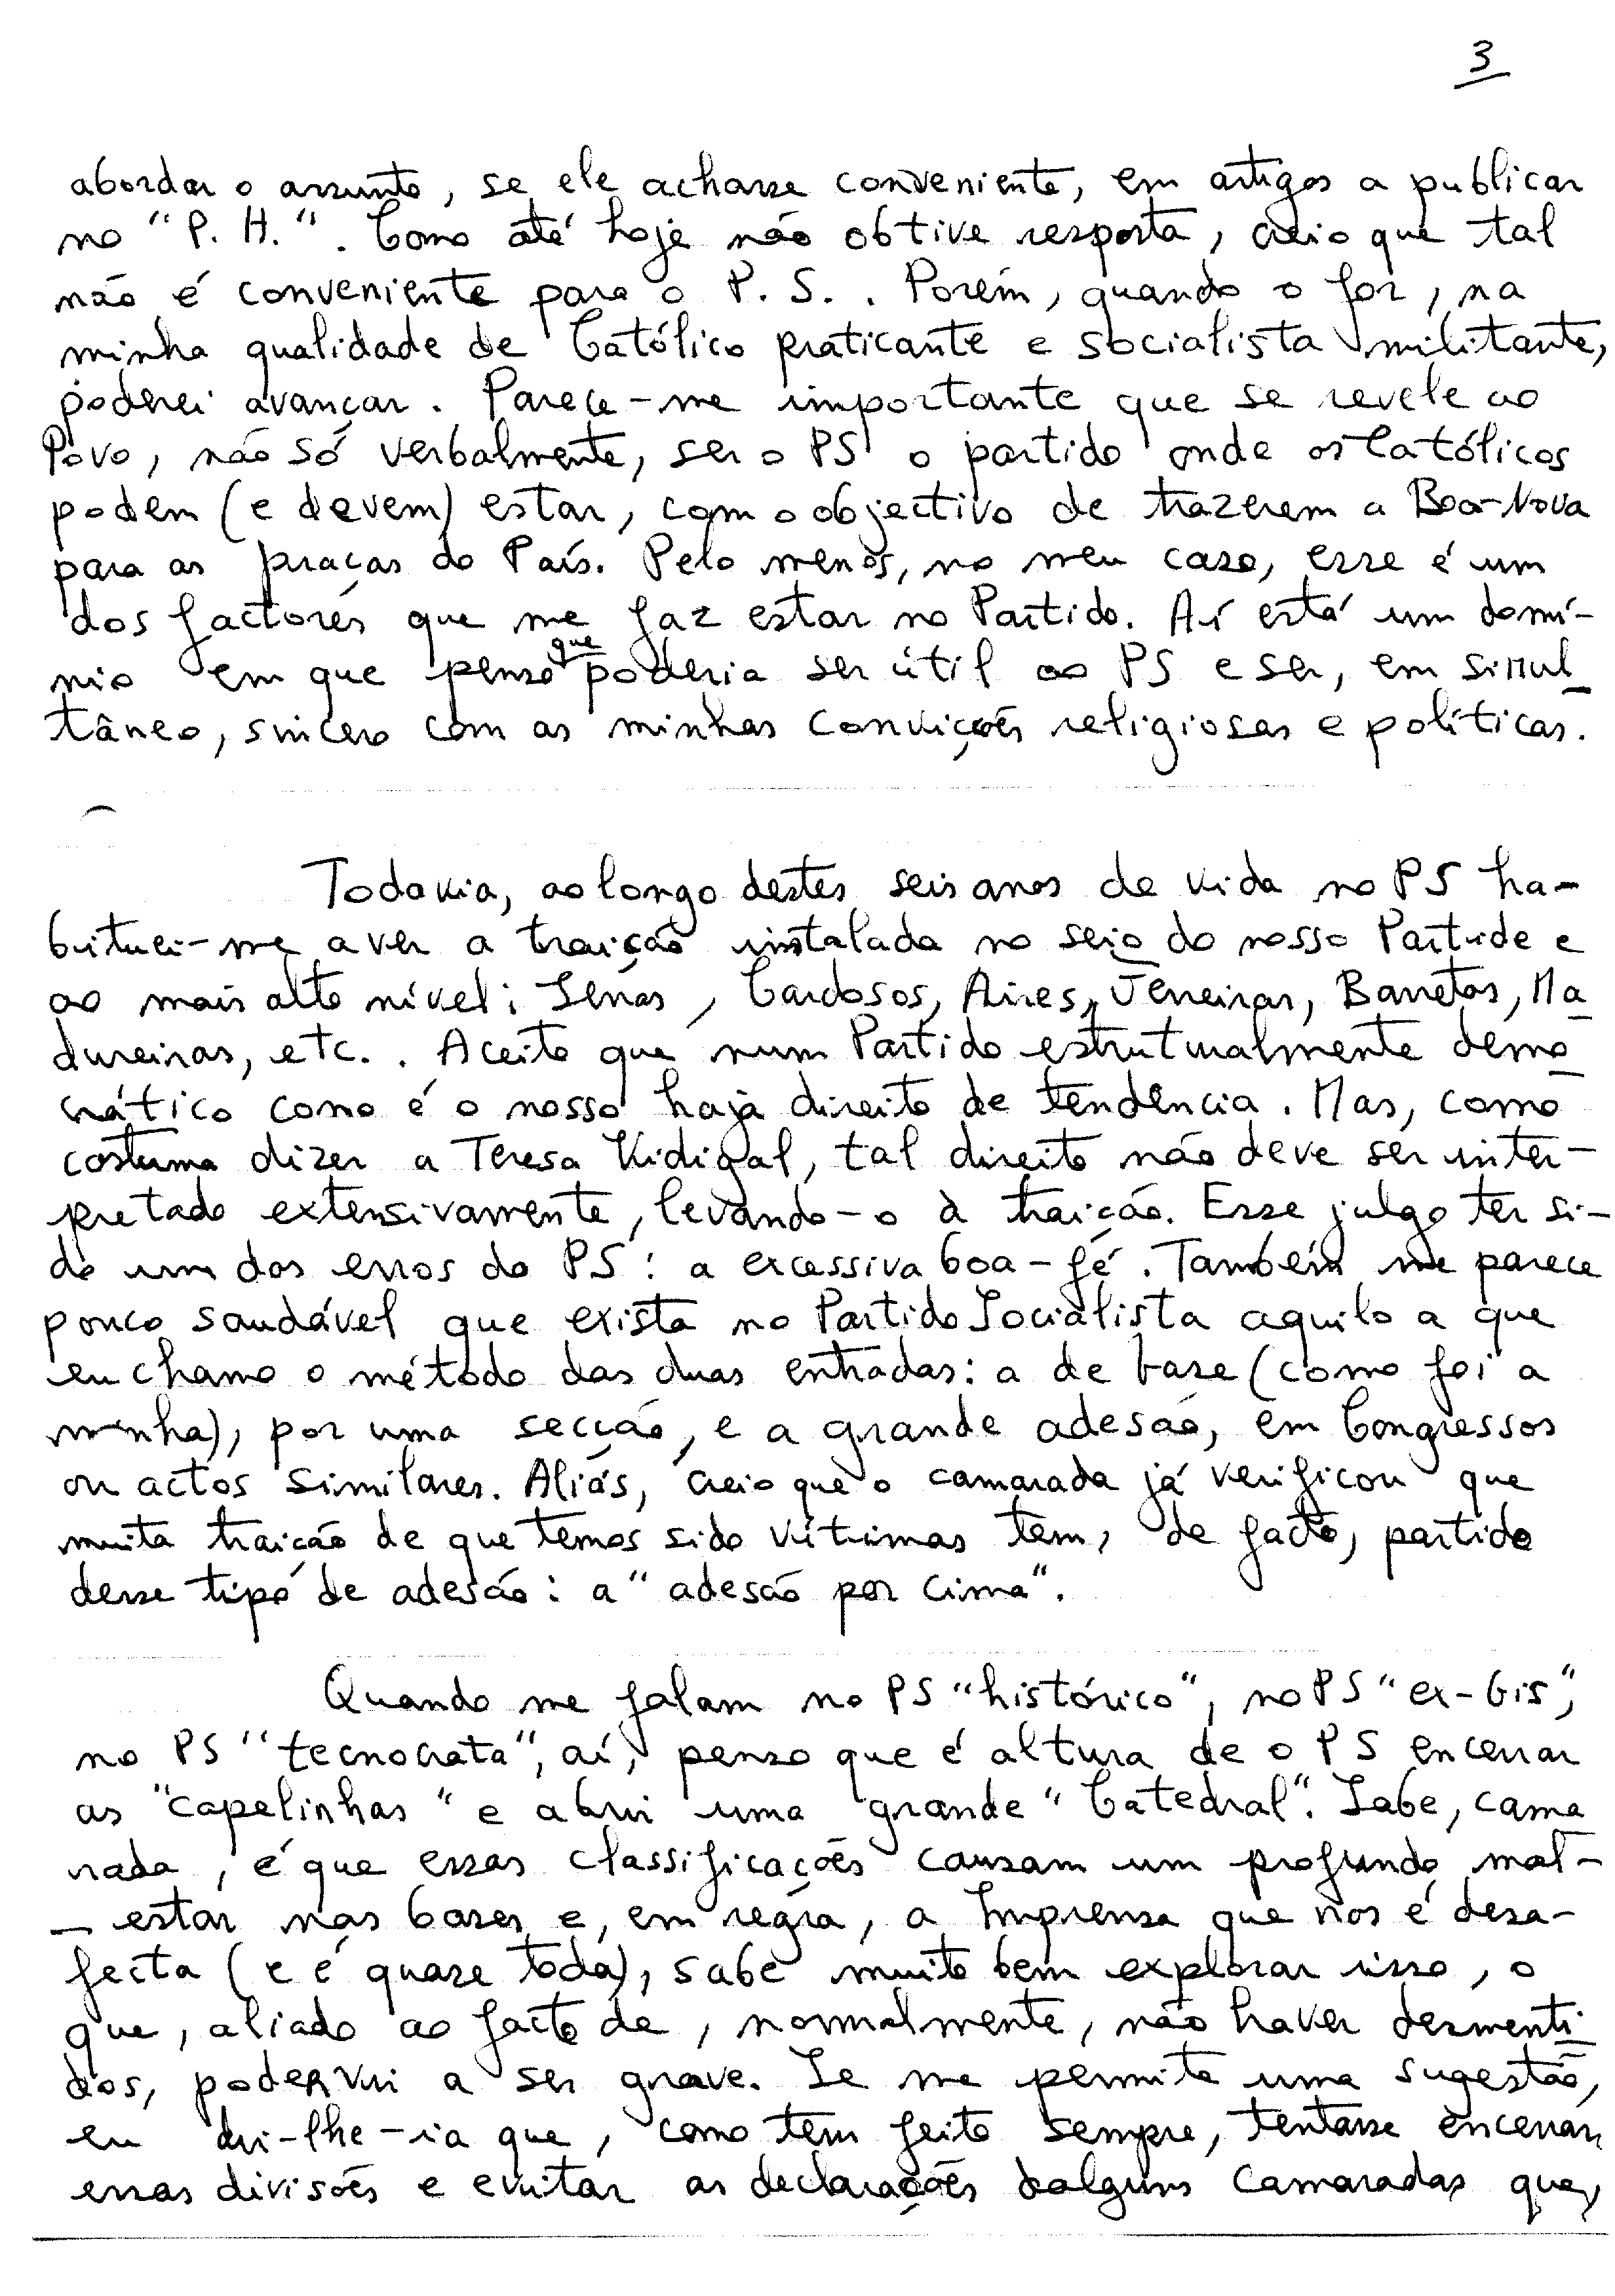 3
abordar o assunto, se ele achasse conveniente, em artigos a publicar
no "P. H.". Como até hoje não obtive resposta, creio que tal
não é conveniente para o P. S.. Porém, quando o for, na
minha qualidade de Católico praticante e socialista militante,
poderei avançar. Parece-me importante que se revele ao
Povo, não só verbalmente, ser o PS o partido onde os Católicos
podem (e devem) estar, com o objectivo de trazerem a Boa-Nova
para as praças do País. Pelo menos, no meu caso, esse é um
dos factores que me faz estar no Partido. Aí está um domí-
nio em que penso que poderia ser útil ao PS e ser, em simul
tâneo, sincero com as minhas convicções religiosas e políticas.
Todavia, ao longo destes seis anos de vida no PS ha-
bituei-me a ver a traição instalada no seio do nosso Partido e
ao mais alto nível: Senas, Cardosos, Aires, Jeneiras, Barretos, Ma
dureiras, etc.. Aceito que num Partido estruturalmente demo
crático como é o nosso haja direito de tendência. Mas, como
costuma dizer a Teresa Vidigal, tal direito não deve ser inter-
pretado extensivamente, levando-o à traição. Esse julgo ter si-
do um dos erros do PS: a excessiva boa-fé. Também me parece
pouco saudável que exista no Partido Socialista aquilo a que
eu chamo o método das duas entradas: a de base (como foi a
minha), por uma secção, e a grande adesão, em Congressos
ou actos similares. Aliás, creio que o camarada já verificou que
muita traição de que temos sido vítimas tem, de facto, partido
desse tipo de adesão: a "adesão por cima".
Quando me falam no PS "histórico", no PS "ex-Gis",
no PS "tecnocrata", aí, penso que é altura de o PS encerrar
as "capelinhas" e abrir uma grande "Catedral". Sabe, cama
rada, é que essas classificações causam um profundo mal-
-estar nas bases e, em regra, a Imprensa que nos é desa-
fecta (e é quase toda), sabe muito bem explorar isso, o
que, aliado ao facto de, normalmente, não haver desmenti
dos, poderá vir a ser grave. Se me permite uma sugestão,
eu dir-lhe-ia que, como tem feito sempre, tentasse encerrar
essas divisões e evitar as declarações dalguns camaradas que,